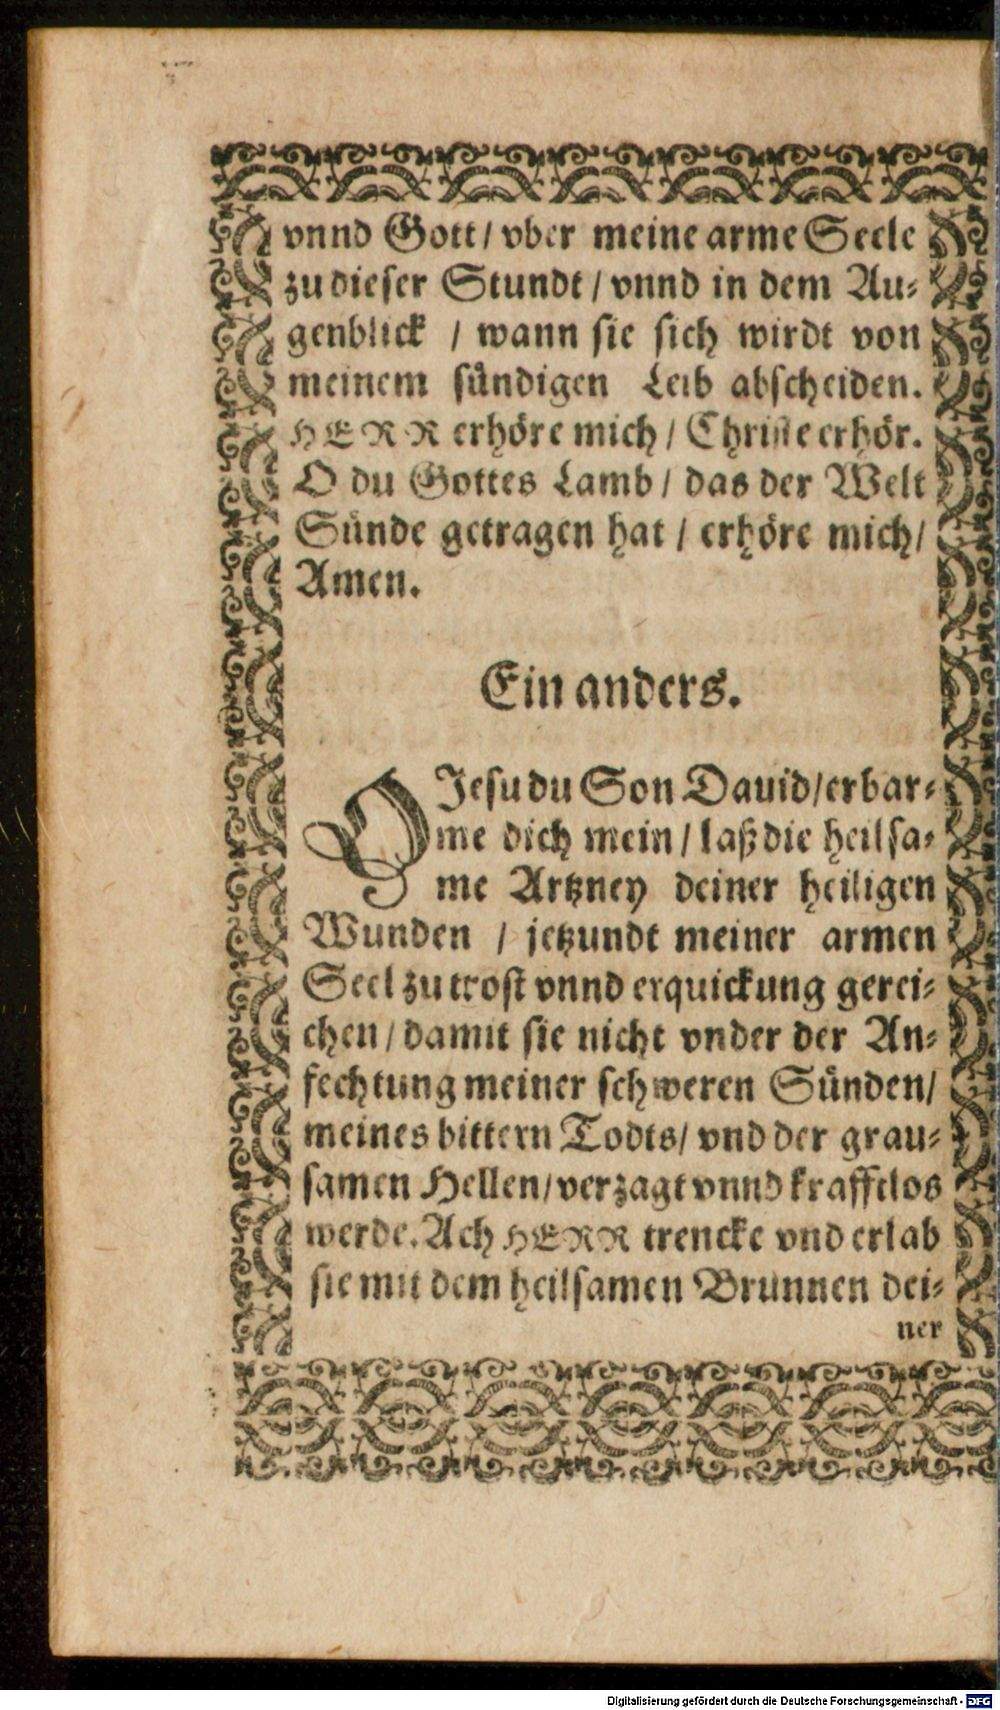 vnnd Gott / vber meine arme Seele
zu dieser Stundt / vnnd in dem Au-
genblick / wann sie sich wirdt von
meinem sündigen Leib abscheiden.
HERR erhöre mich / Christe erhör.
O du Gottes Lamb / das der Welt
Sünde getragen hat / erhöre mich /
Amen.
Ein anders.
O Jesu du Son Dauid / erbar-
me dich mein / laß die heilsa-
me Artzney deiner heiligen
Wunden / jetzundt meiner armen
Seel zu trost vnnd erquickung gerei-
chen / damit sie nicht vnder der An-
fechtung meiner schweren Sünden /
meines bittern Todts / vnd der grau-
samen Hellen / verzagt vnnd krafftlos
werde. Ach HERR trencke vnd erlab
sie mit dem heilsamen Brunnen dei-
ner
Digitalisierung gefördert durch die Deutsche Forschungsgemeinschaft - DFG